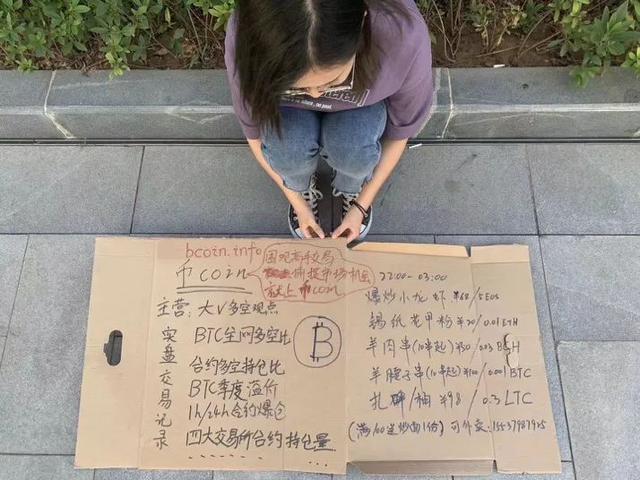 bcoin.info
币COIN
围观高手交易
捕捉市场机会
就上币COIN
主营：大V多空观点
实盘交易记录
BTC全网多空比
合约多空持仓比
BTC季度溢价
1h/24h合约爆仓
四大交易所合约持仓量
22:00-03:00
爆炒小龙虾 ¥68/5EOS
锡纸花甲粉 ¥20/0.01ETH
羊肉串(10串起)¥50/0.03BCH
羊腰子串(10串起)¥100/0.001BTC
扎啤/桶 ¥98/0.3LTC
可外卖: